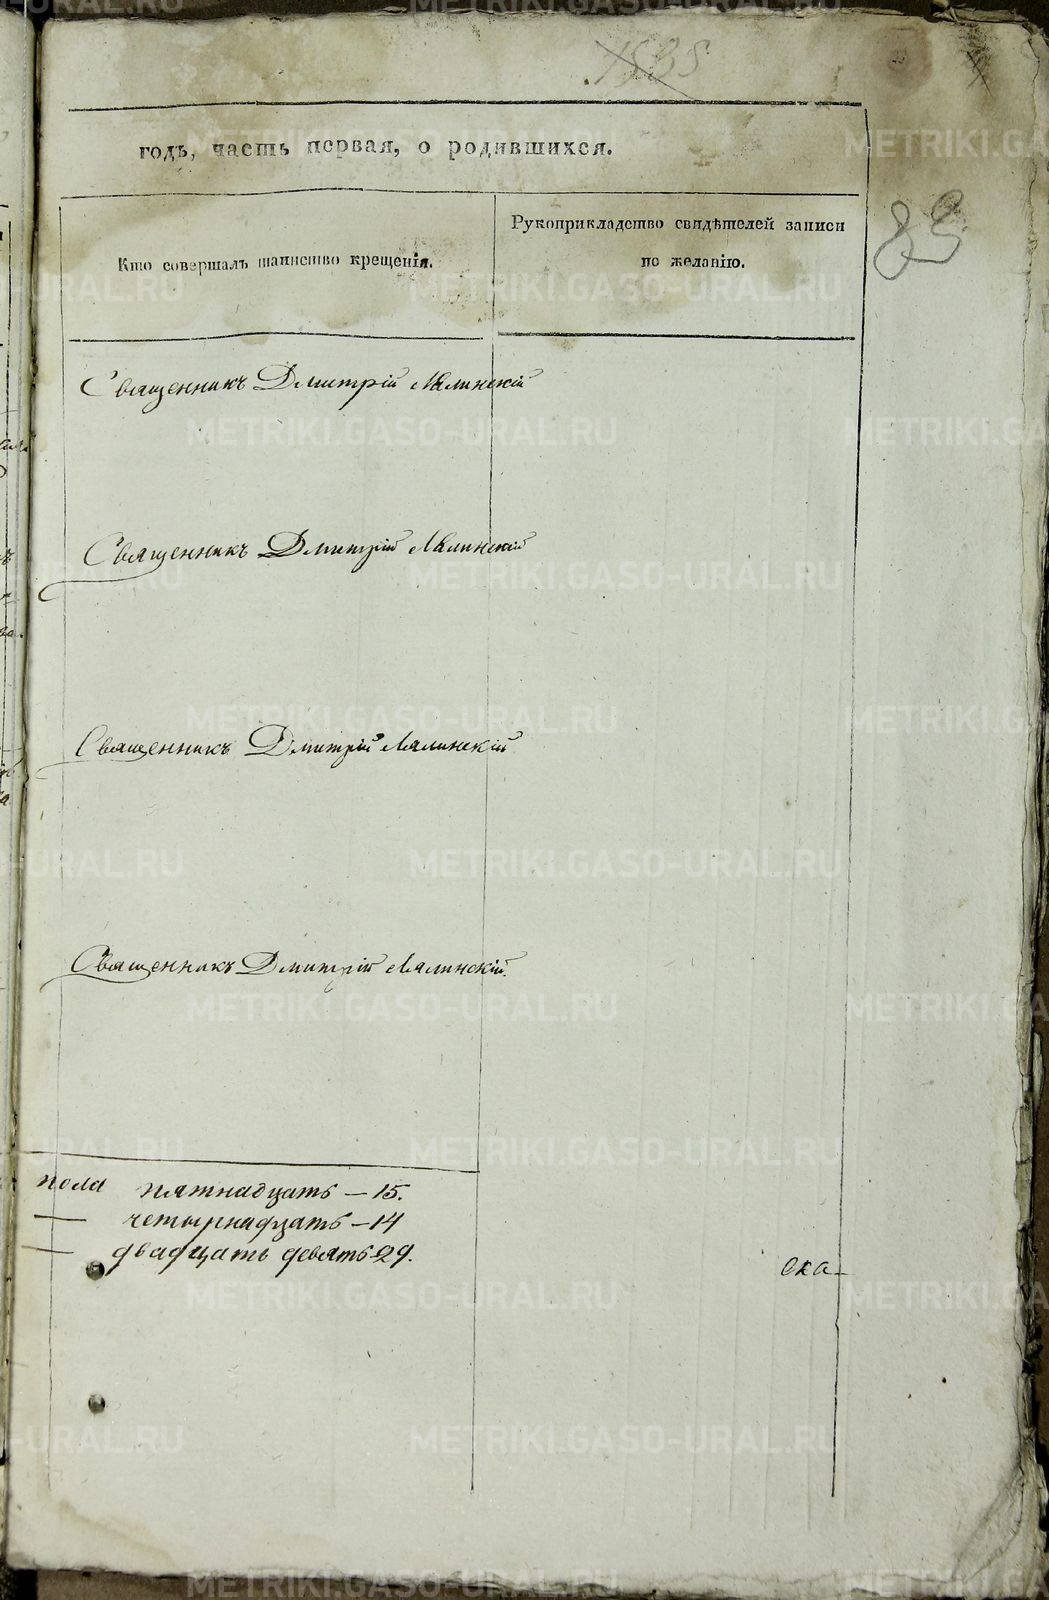 годъ, часть первая, о родившихся.
85
Кто совершалъ таинство крещенія.
Рукоприкладство свидѣтелей записи
по желанію.
Священникъ Дмитрій Лялинскій
Священникъ Дмитрій Лялинскій
Священникъ Дмитрій Лялинскій
Священникъ Дмитрій Лялинскій.
пола пятнадцать – 15.
— четырнадцать – 14
— двадцать девять 29.
ска–
METRIKI.GASO-URAL.RU